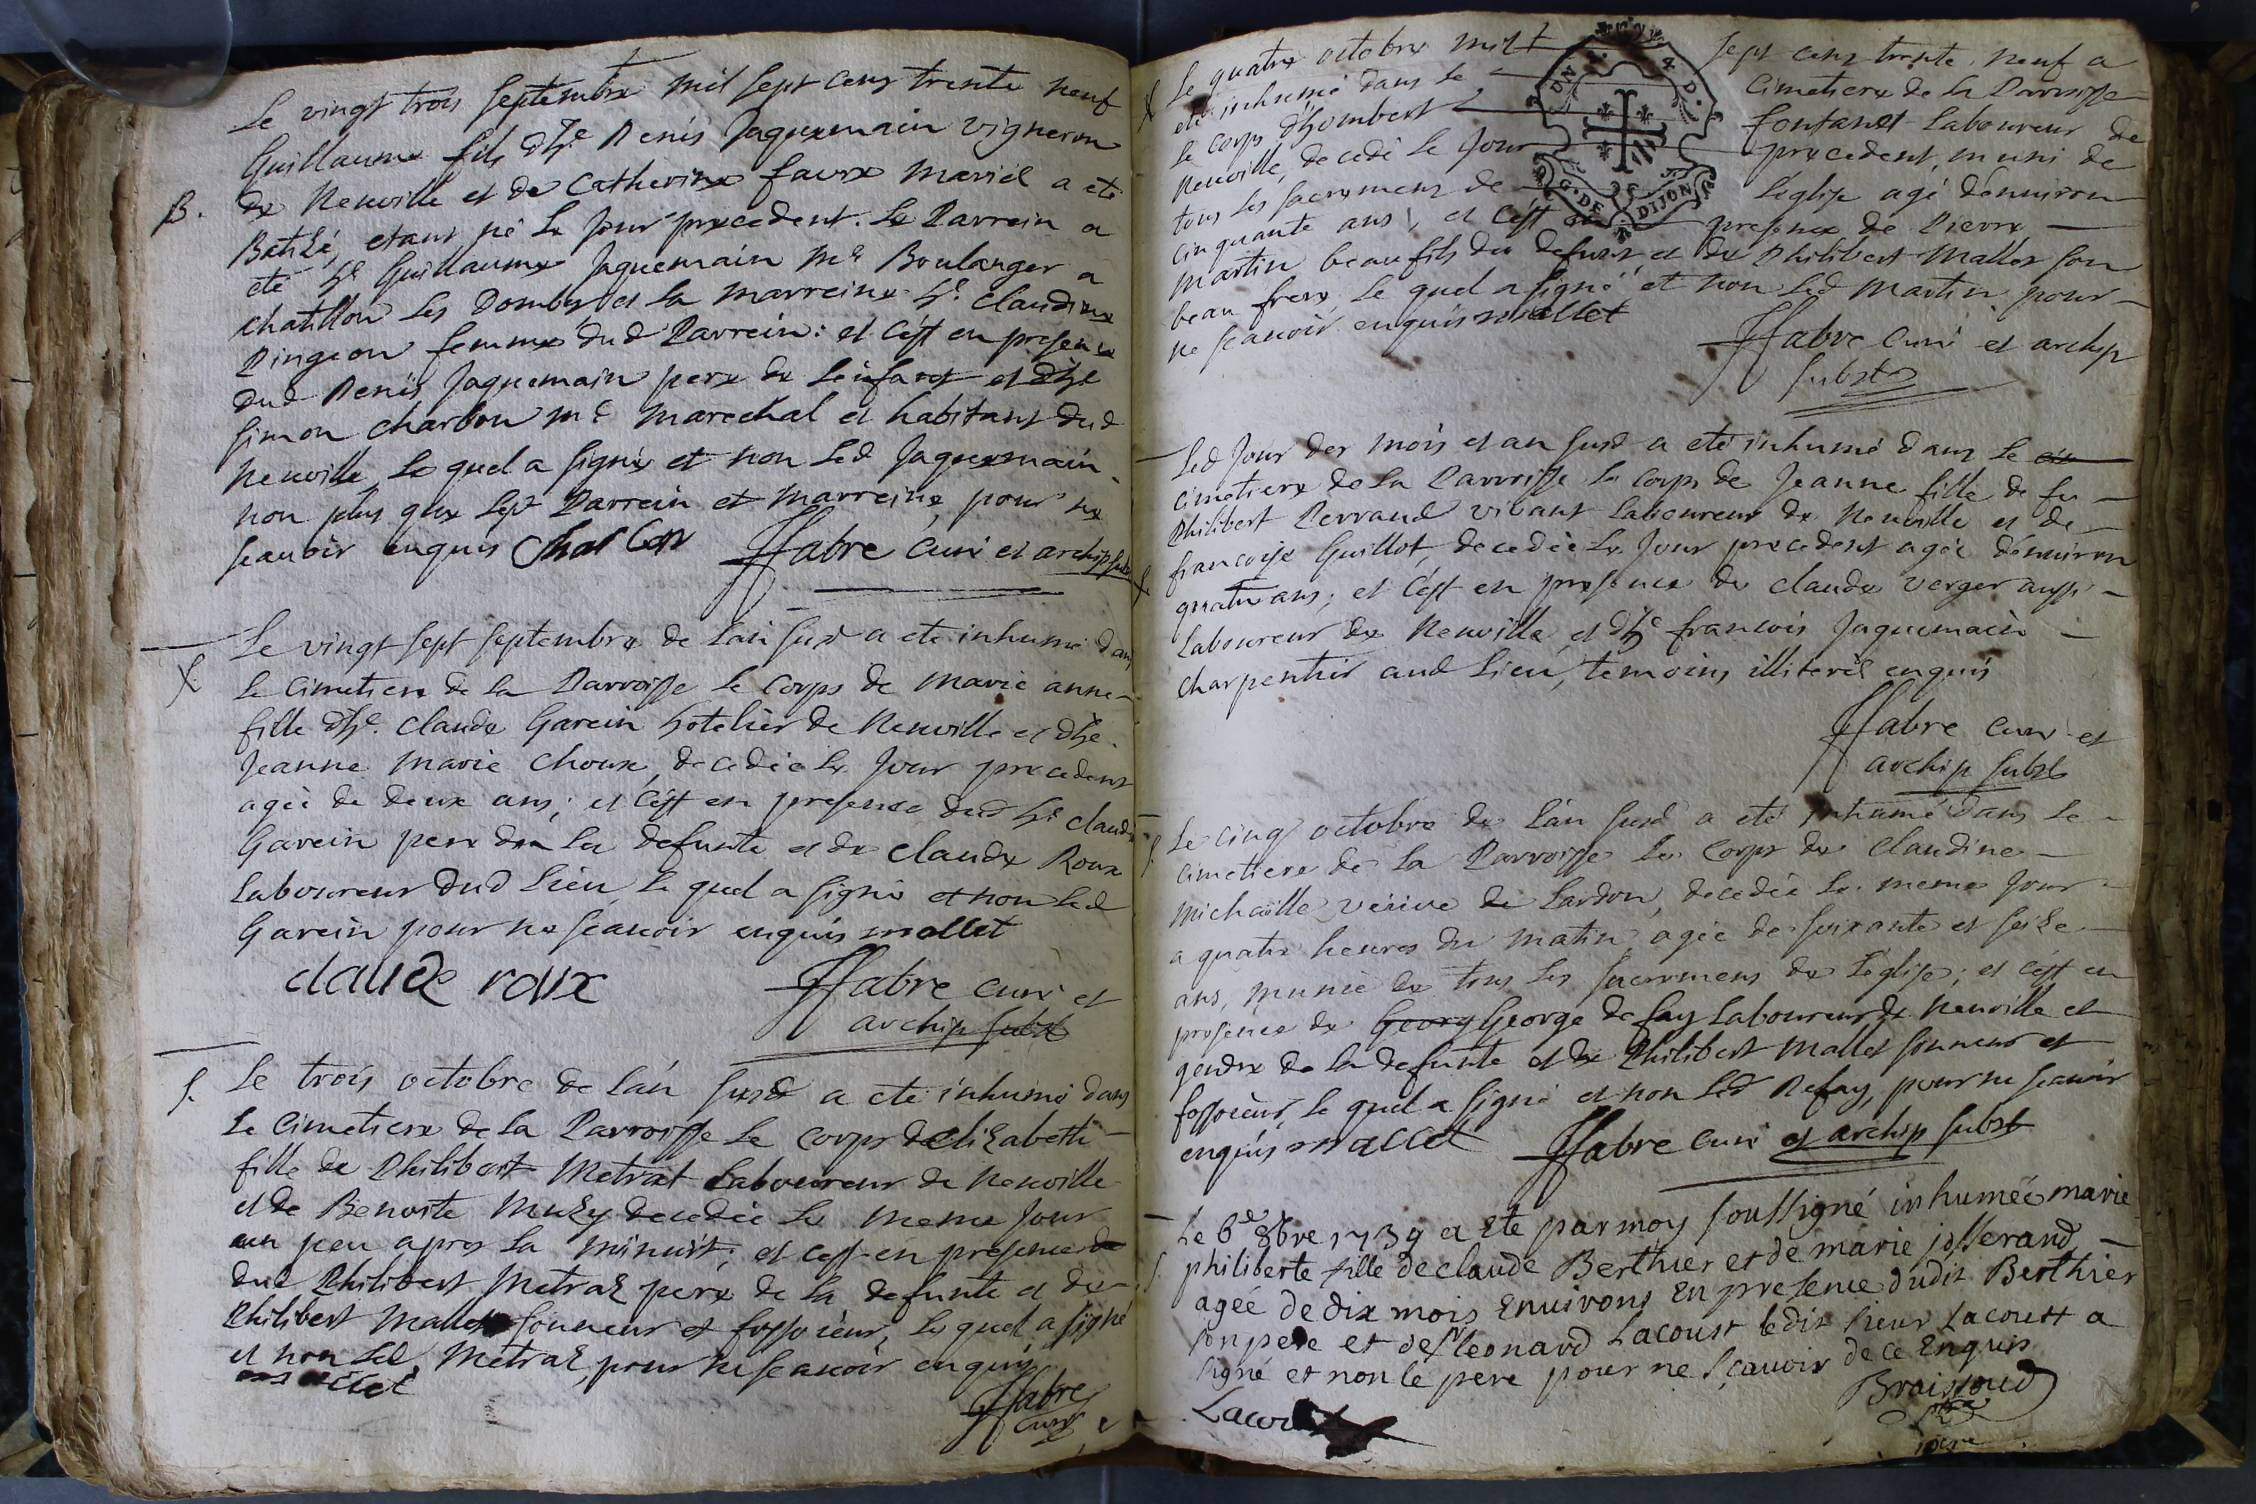 Le vingt trois septembre mil sept cens trente neuf
Guillaume fils d'he. Denis Jaquemain vigneron
de Neuville et de Catherine favre mariés a eté
B. Batisé, etant né le jour precedent. Le Parrein a
eté he. Guillaume Jaquemain Me Boulanger a
chatillon les Dombes et la marreine he. claudine
Pingeon femme dud Parrein: et c'est en presence
dud Denis Jaquemain pere de l'enfant et d'he
Simon charbon me marechal et habitant dud
Neuville, le quel a signé et non led Jaquemain
non plus que lesd Parrein et marreine, pour ne
scavoir enquis Charbon ffabre curé et archip subst
Le vingt sept septembre de l'an susd a eté inhumé dans
S. le cimetiere de la Parroisse le corps de marie anne
fille d'he. claude Garein hotelier de Neuville et d'he.
Jeanne marie Choux, decedée le jour precedent
agée de deux ans; et c'est en presence dud he claude
Garein pere de la defunte et de claude Roux
laboureur dud lieu, le quel a signé et non led
Garein pour ne scavoir enquis mallet
claude roux ffabre curé et
archip subst
S. Le trois octobre de l'an susd a eté inhumé dans
le cimetiere de la Parroisse le corps d'elizabeth
fille de Philibert Metrat laboureur de Neuville
et de Benoite Muzy decedée le meme jour
un peu apres la minuit; et c'est en presence
dud Philibert Metraz pere de la defunte et de
Philibert Mallet sonneur et fossoieur, le quel a signé
et non led. Metraz, pour ne scavoir enquis
mallet
ffabre
curé
Le quatre octobre mil sept cens trente neuf a
eté inhumé dans le cimetiere de la Parroisse
le corps d'hombert fontanet laboureur de
Neuville, decedé le jour precedent, muni de
tous les sacremens de l'eglise agé d'environ
cinquante ans, et c'est en presence de Pierre
martin beau fils du defunt, et de Philibert Mallet son
beau frere, le quel a signé et non led martin pour
ne scavoir enquis mallet
ffabre curé et archip
subst
G. DE DIJON
Led jour des mois et an susd a eté inhumé dans le
cimetiere de la Parroisse le corps de Jeanne fille de fu
Philibert Perraud vivant laboureur de Neuville et de
francoise Guillot, decedée le jour precedent agée d'environ
quatre ans; et c'est en presence de claude verger aussi
laboureur de Neuville et d'he francois Jaquemain
charpentier aud lieu, temoins illiterés enquis
ffabre curé et
archip subst
S. Le cinq octobre de l'an susd a eté inhumé dans le
cimetiere de la Parroisse le corps de claudine
michaille veuve de Lardon, decedée le meme jour
a quatre heures du matin, agée de soixante et seize
ans, munie de tous les sacremens de l'eglise; et c'est en
presence de Georg George de fay laboureur de Neuville et
gendre de la defunte et de Philibert mallet sonneur et
fossoieur, le quel a signé et non led Defay, pour ne scavoir
enquis mallet ffabre curé et archip subst
Le 6e 8bre 1739 a ete par moy soussigné inhumée marie
philiberte fille de claude Berthier et de marie josserand
agée de dix mois environs en presence dudit Berthier
son pere et de sr leonard Lacoust ledit sieur Lacoust a
signé et non le pere pour ne sçavoir de ce enquis